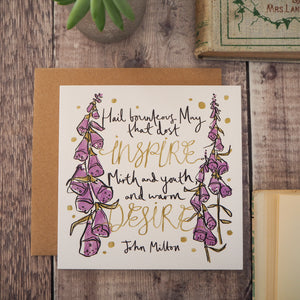 MRS LAN
Hail bounteous May
that dost
INSPIRE
Mirth and youth
and warm
DESIRE
John Milton